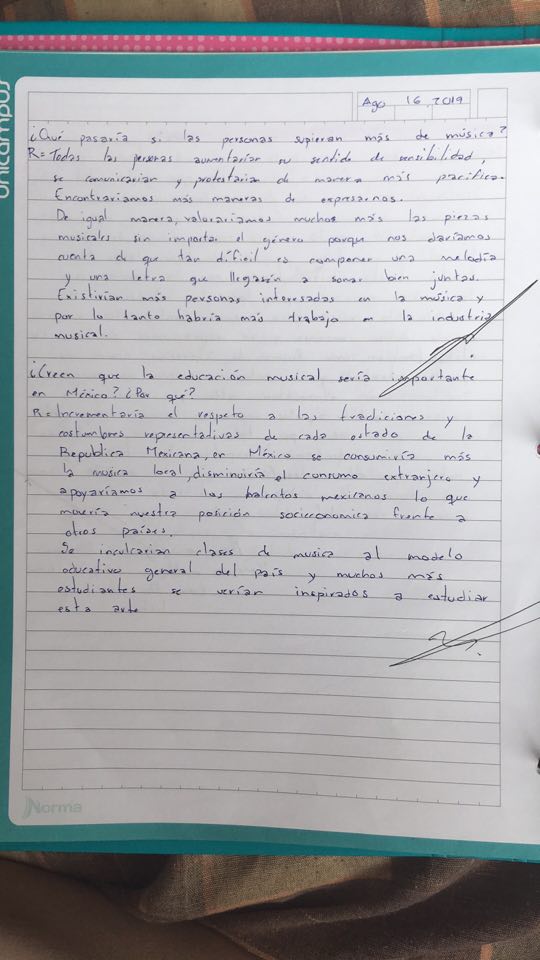 unicampus
Ago 16, 2019
¿Qué pasaría si las personas supieran más de música?
R= Todas las personas aumentarían su sentido de sensibilidad,
se comunicarían y protestaría de manera más pacifica.
Encontraríamos más maneras de expresarnos.
De igual manera, valoraríamos muchos más las piezas
musicales sin importar el género porque nos daríamos
cuenta de que tan díficil es componer una melodía
y una letra que llegasen a sonar bien juntas.
Existirían más personas interesadas en la música y
por lo tanto habría más trabajo en la industria
musical.
¿Creen que la educación musical sería importante
en México? ¿Por qué?
R= Incrementaría el respeto a las tradiciones y
costumbres representativas de cada estado de la
Republica Mexicana, en México se consumiría más
la musica local, disminuiría el consumo extranjero y
apoyaríamos a los talentos mexicanos lo que
movería nuestra posición socioeconomica frente a
otros países.
Se inculcarian clases de musica al modelo
educativo general del país y muchos más
estudiantes se verían inspirados a estudiar
esta arte
Norma